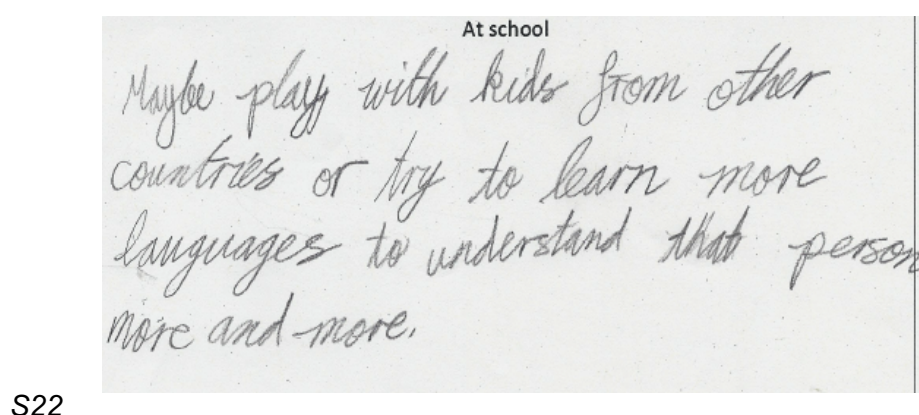 At school
Maybe play with kids from other
countries or try to learn more
languages to understand that person
more and more.
S22